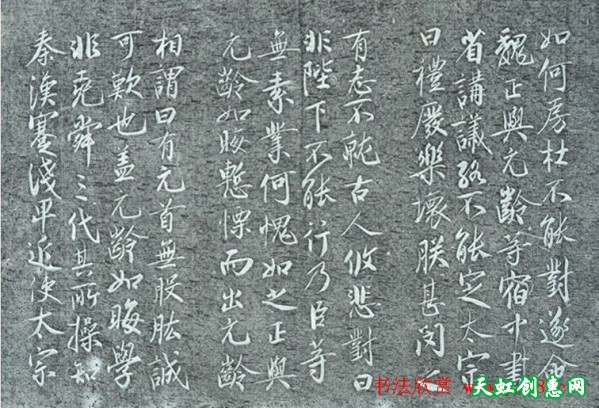 如何房杜不能對遂命
魏正與元齡等宿中書
省講議終不能定太宗
曰禮廢樂壞朕甚閔之
有志不就古人攸悲對曰
非陛下不能行乃臣等
無素業何愧如之正與
元齡如晦慙慄而出元齡
相謂曰有元首無股肱誠
可歎也盖元齡如晦學
非堯舜三代其所操知
秦漢蹇淺卑近使太宗
书法欣赏
天虹创惠网